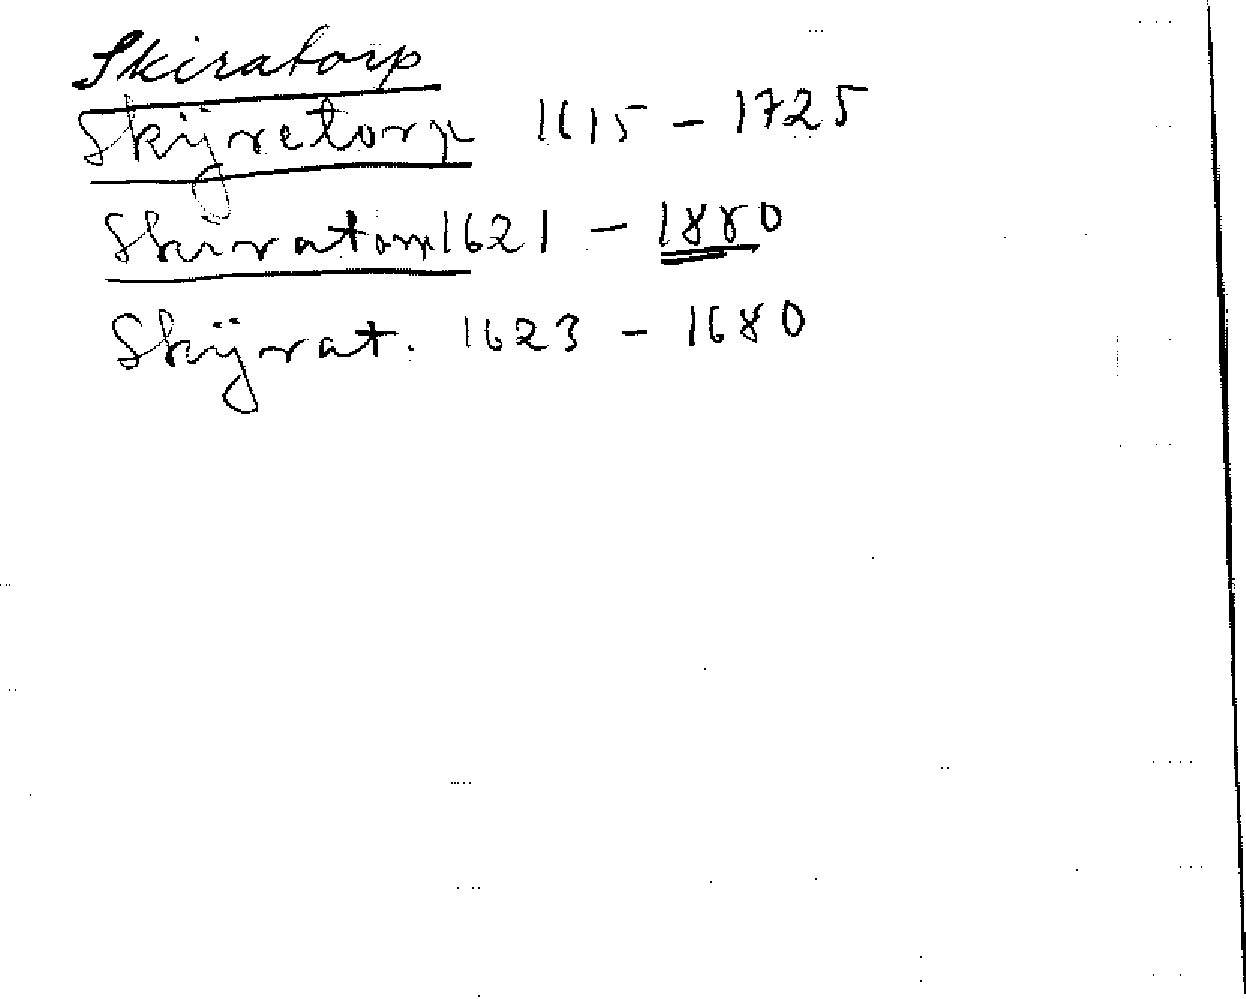 Skiratorp
Skijretorp 1615 - 1725
Skiratorp 1621 - 1880
Skijrat. 1623 - 1680